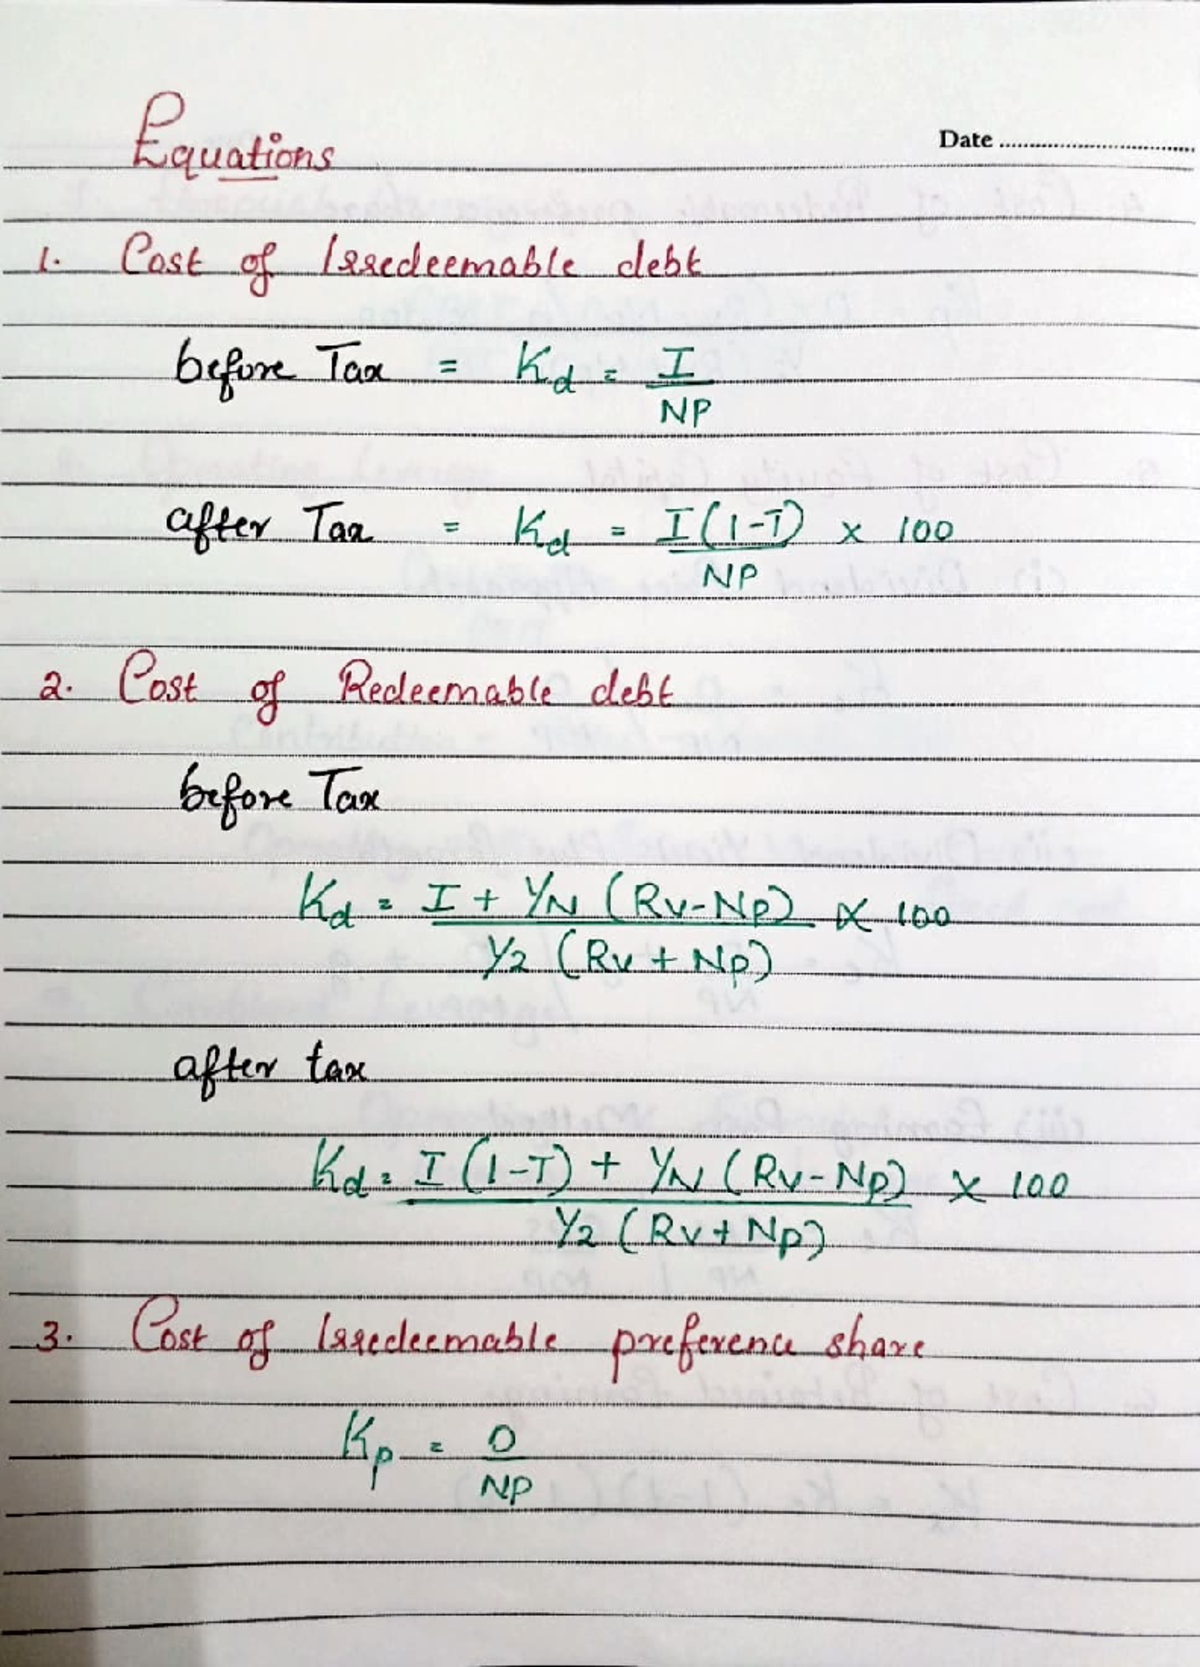 Equations
Date
1. Cost of Irredeemable debt
before Tax = Kd = I
NP
after Tax = Kd = I(1-T) x 100
NP
2. Cost of Redeemable debt
before Tax
Kd = I + 1/N (Rv-Np) x 100
1/2 (Rv + Np)
after tax
Kd = I (1-T) + 1/N (Rv-Np) x 100
1/2 (Rv + Np)
3. Cost of Irredeemable preference share
Kp = D
NP